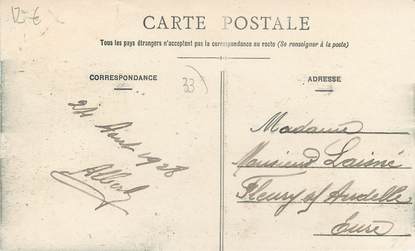 12 €
CARTE POSTALE
Tous les pays étrangers n'acceptent pas la correspondance au recto (Se renseigner à la poste)
CORRESPONDANCE
33
ADRESSE
24 Août 1928
Albert
Madame
Monsieur Lainé
Fleury s/ Andelle
Eure